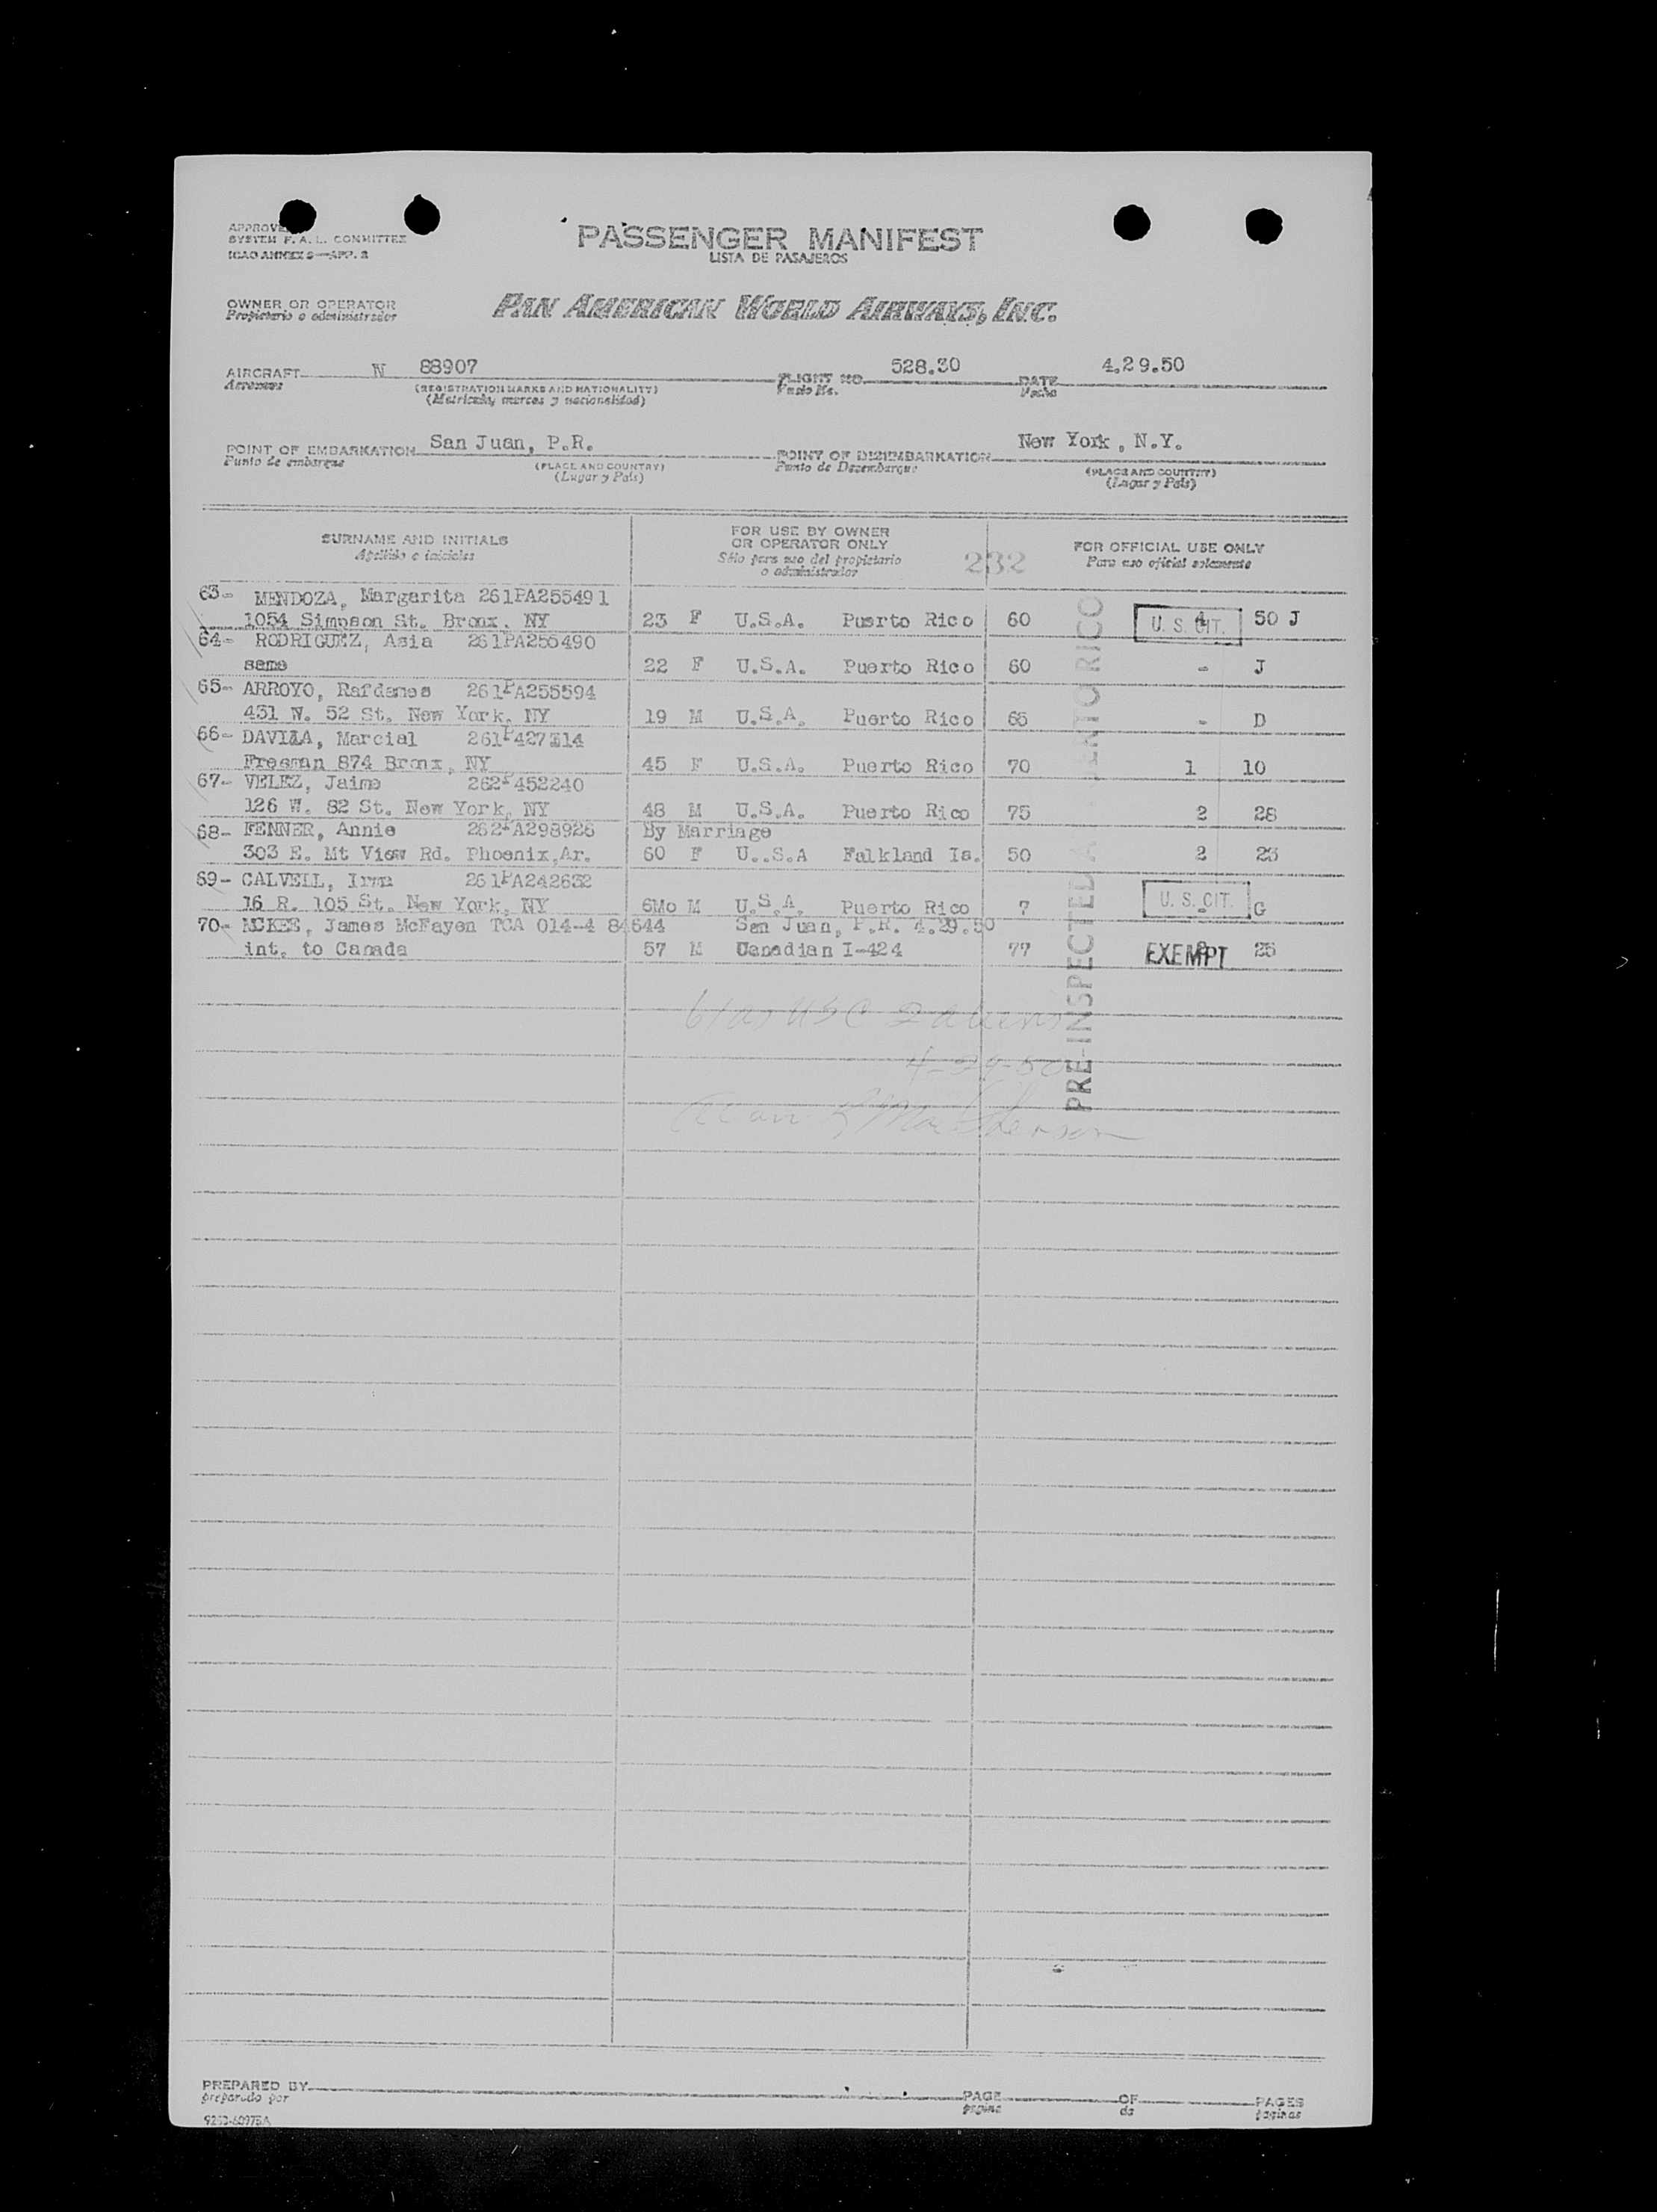 APPROVE
SYSTEM F. A. L. COMMITTEE
ICAO ANNEX 9—APP. 2
PASSENGER MANIFEST
LISTA DE PASAJEROS
OWNER OR OPERATOR
Propietario o administrador
PAN AMERICAN WORLD AIRWAYS, INC.
AIRCRAFT N 88907 FLIGHT NO. 528.30 DATE 4.29.50
Aeronave (REGISTRATION MARKS AND NATIONALITY) Vuelo No. Fecha
(Matricula, marcas y nacionalidad)
POINT OF EMBARKATION San Juan, P.R. POINT OF DISEMBARKATION New York, N.Y.
Punto de embarque (PLACE AND COUNTRY) Punto de Desembarque (PLACE AND COUNTRY)
(Lugar y País) (Lugar y País)
SURNAME AND INITIALS
Apellido e iniciales
FOR USE BY OWNER
OR OPERATOR ONLY
Sólo para uso del propietario
o administrador
232
FOR OFFICIAL USE ONLY
Para uso oficial solamente
63- MENDOZA, Margarita 261PA255491
1054 Simpson St. Bronx, NY 23 F U.S.A. Puerto Rico 60 U. S. CIT. 4 50 J
64- RODRIGUEZ, Asia 261PA255490
same 22 F U.S.A. Puerto Rico 60 - J
65- ARROYO, Rafdanes 261PA255594
431 W. 52 St. New York, NY 19 M U.S.A. Puerto Rico 66 - D
66- DAVILA, Marcial 261P427314
Freeman 874 Bronx, NY 45 F U.S.A. Puerto Rico 70 1 10
67- VELEZ, Jaime 262P452240
126 W. 82 St. New York, NY 48 M U.S.A. Puerto Rico 75 2 28
68- FENNER, Annie 262PA298926 By Marriage
303 E. Mt View Rd. Phoenix,Ar. 60 F U..S.A Falkland Is. 50 2 23
69- CALVELL, Irma 261PA242632
16 R. 105 St. New York, NY 6Mo M U.S.A. Puerto Rico ? U. S. CIT. - G
70- MCKEE, James McFayen TCA 014-4 84644 San Juan, P.R. 4.29.50
int. to Canada 57 M Canadian I-424 77 EXEMPT 2 25
PRE-INSPECTED A PUERTO RICO
USC 2 aliens
4-29-50
PREPARED BY PAGE OF PAGES
preparado por pagina de paginas